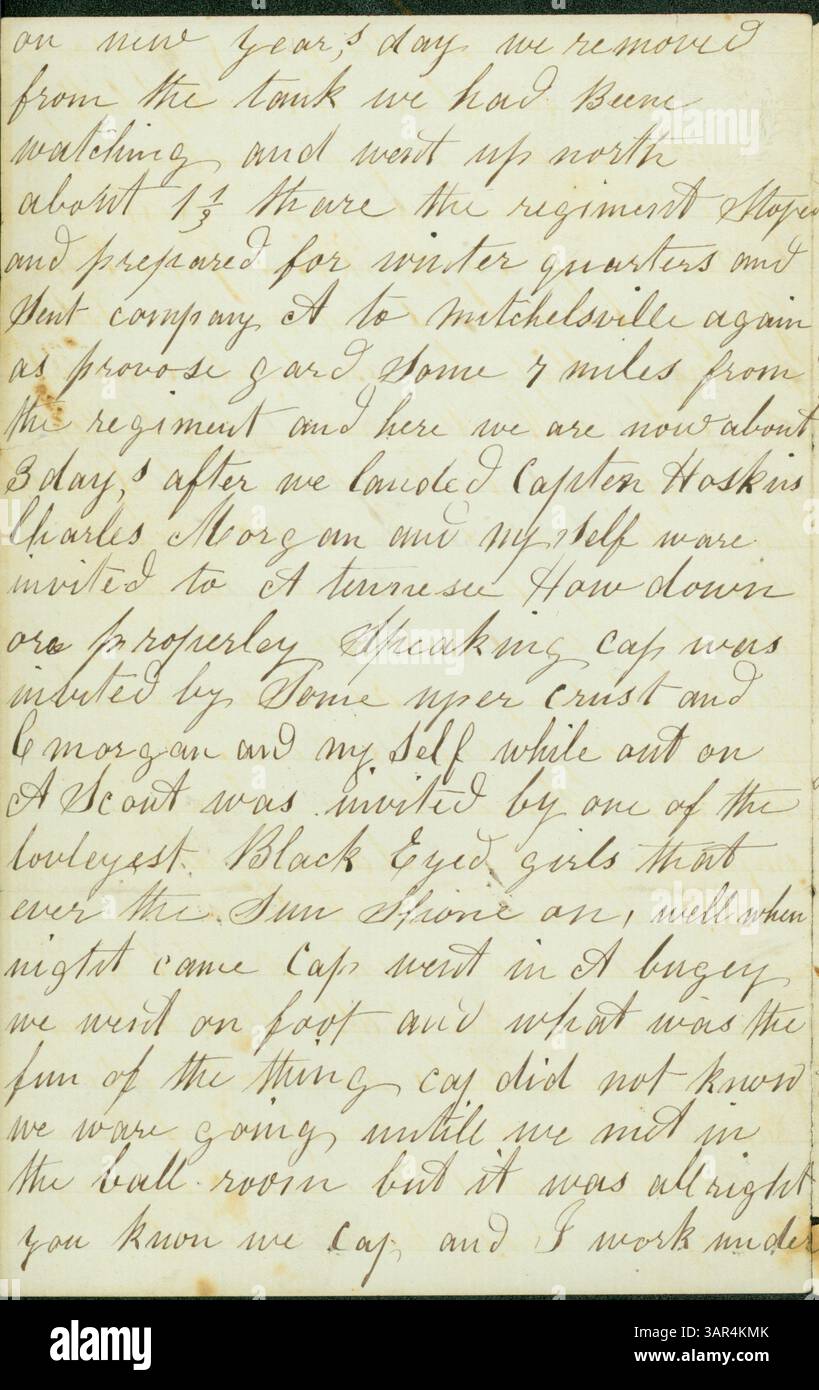 on new year,s day we removed
from the tank we had Beene
watching and went up north
about 1 1/3 thare the regiment stoped
and prepared for winter quarters and
Sent company A to mitchelsville again
as provose gard Some 7 miles from
the regiment and here we are now about
3 day,s after we landed Capten Hoskins
Charles Morgan and my self ware
invited to A tennesee How down
ore properley Speaking cap was
invited by Some uper crust and
C morgan and my Self while out on
A Scout was invited by one of the
lovleyest Black Eyed girls that
ever the Sun Shone on, well when
night came Cap went in A bugey
we went on foot and what was the
fun of the thing cap did not know
we ware going untill we met in
the ball room but it was all right
you know we Cap and I work under
alamy
alamy
Image ID: 3AR4KMK
www.alamy.com